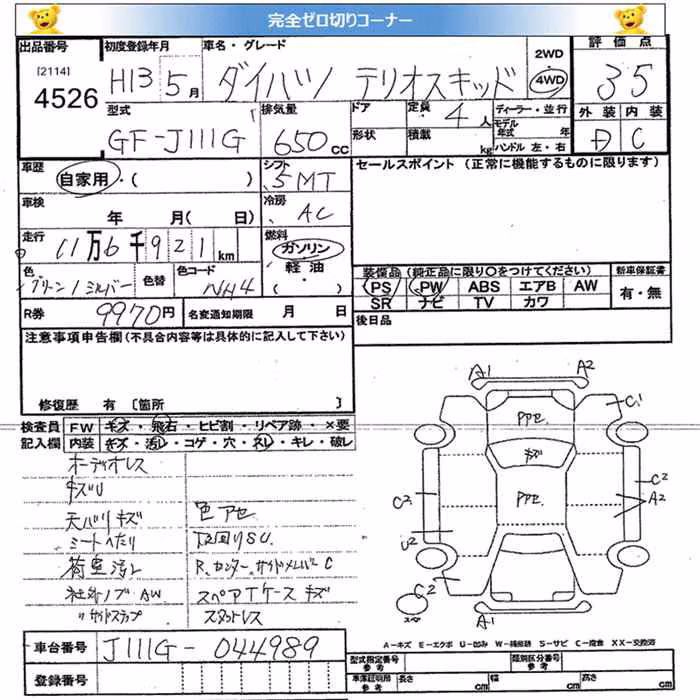 完全ゼロ切りコーナー
出品番号 初度登録年月 車名・グレード 2WD 評価点
[2114]
4526 H13 5月 ダイハツ テリオスキッド 4WD 35
型式 排気量 ドア 定員 4人 ディーラー・並行 外装 内装
GF-J111G 650cc 形状 積載 kg モデル年式 年 ハンドル 左・右 D C
車歴 自家用・( ) シフト 5MT セールスポイント (正常に機能するものに限ります)
車検 年 月( 日) 冷房 AC
走行 11万6千921km 燃料 ガソリン・軽油・( )
色 グリーン/シルバー 色替 色コード NH4
装備品(純正品に限り○をつけてください) 新車保証書
PS PW ABS エアB AW 有・無
SR ナビ TV カワ
R券 9970円 名変通知期限 月 日 後日品
注意事項申告欄 (不具合内容等は具体的に記入して下さい)
修復歴 有 〔箇所 〕
検査員 FW キズ・飛石・ヒビ割・リペア跡・×要
記入欄 内装 キズ・汚レ・コゲ・穴・スレ・キレ・破レ
オーディオレス
キズU
天バリキズ 色アセ
シートヘたり 下回りSU
荷室汚レ R.センター.サイドメンバーC
社外ノブ AW スペアTケースキズ
〃サイドステップ スタットレス
A1 A2
C1
アアセ
キズ
C2 アアセ C2
A2
U2
C2
スペ A1
車台番号 J111G-044989
登録番号
A-キズ E-エクボ U-凹み W-補修跡 S-サビ C-腐食 XX-交換済
型式指定番号 類別区分番号
参考 参考
車庫証明用 長さ cm 幅 cm 高さ cm
参考